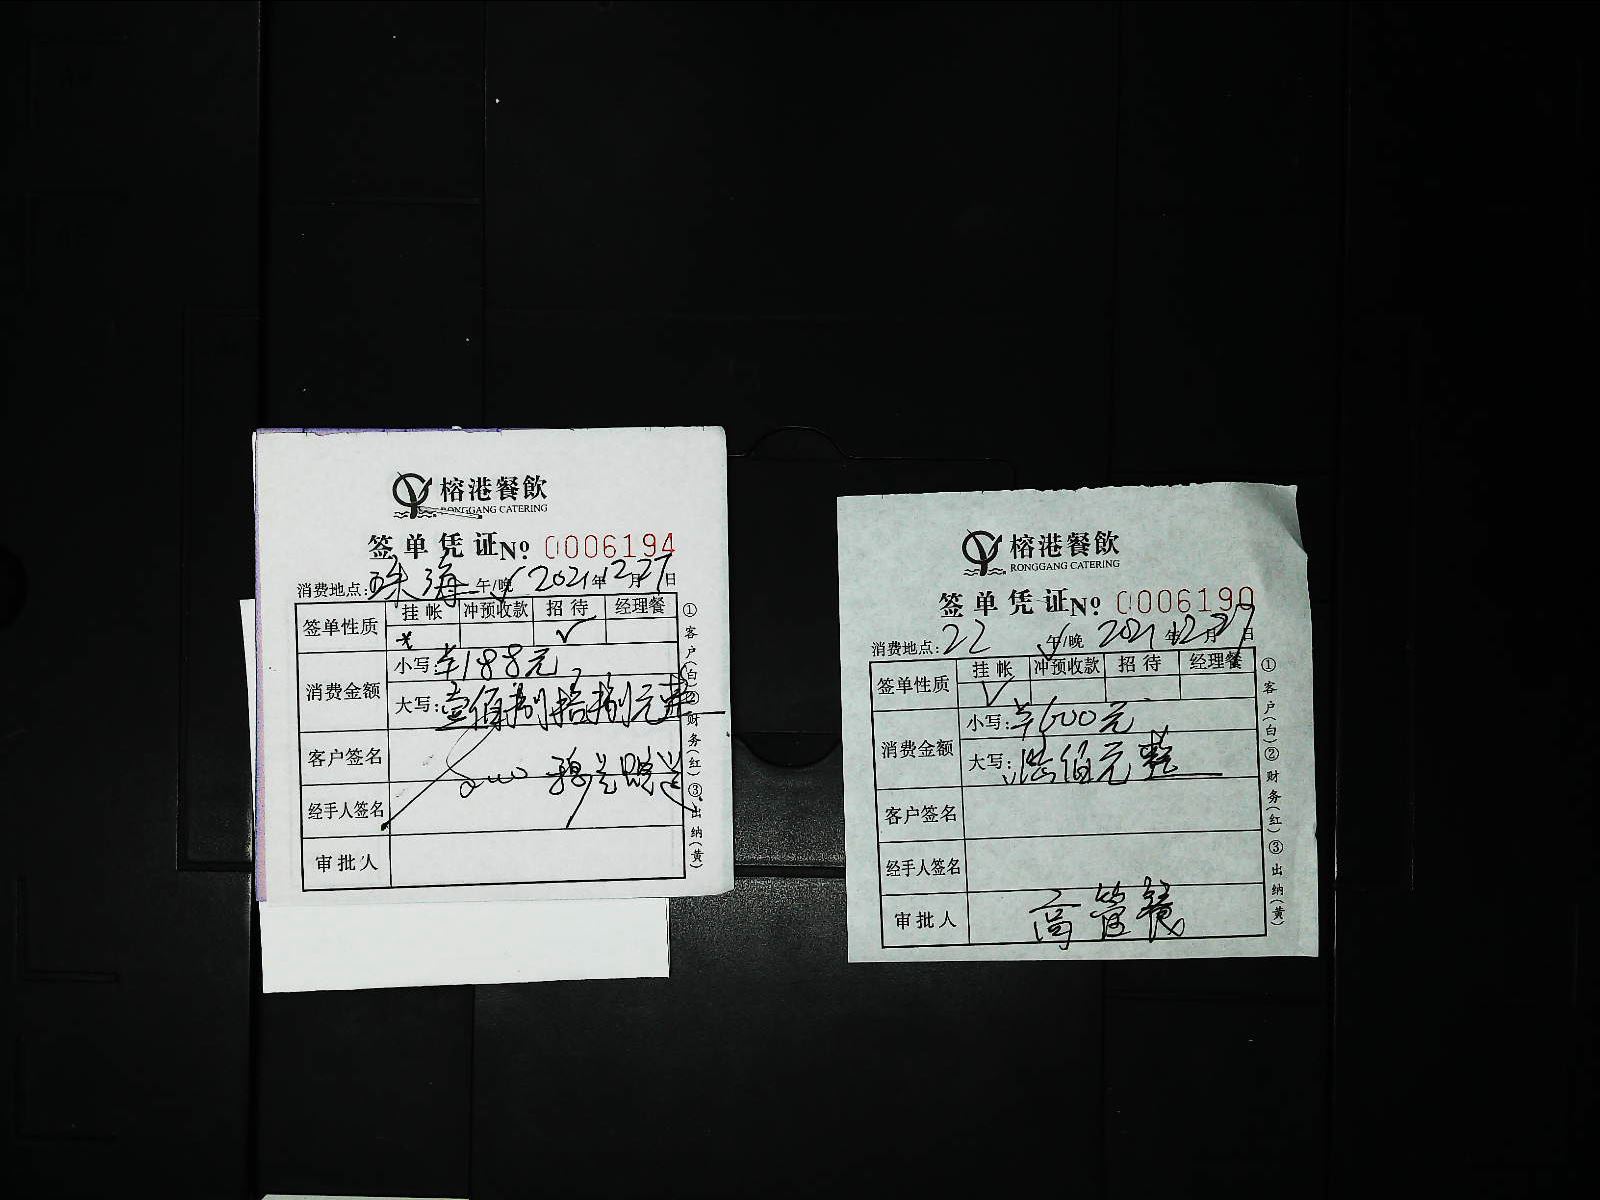 榕港餐飲
RONGGANG CATERING
签单凭证 Nº 0006194
消费地点: 珠海 午/晚 2021年12月27日
签单性质 挂帐 冲预收款 招待 经理餐
✓
消费金额
小写: 188元
大写: 壹佰捌拾捌元整
客户签名
经手人签名
审批人
①客户(白)②财务(红)③出纳(黄)
榕港餐飲
RONGGANG CATERING
签单凭证 Nº 0006190
消费地点: 22 午/晚 2021年12月27日
签单性质 挂帐 冲预收款 招待 经理餐
✓
消费金额
小写: 600元
大写: 陆佰元整
客户签名
经手人签名
审批人 高管餐
①客户(白)②财务(红)③出纳(黄)